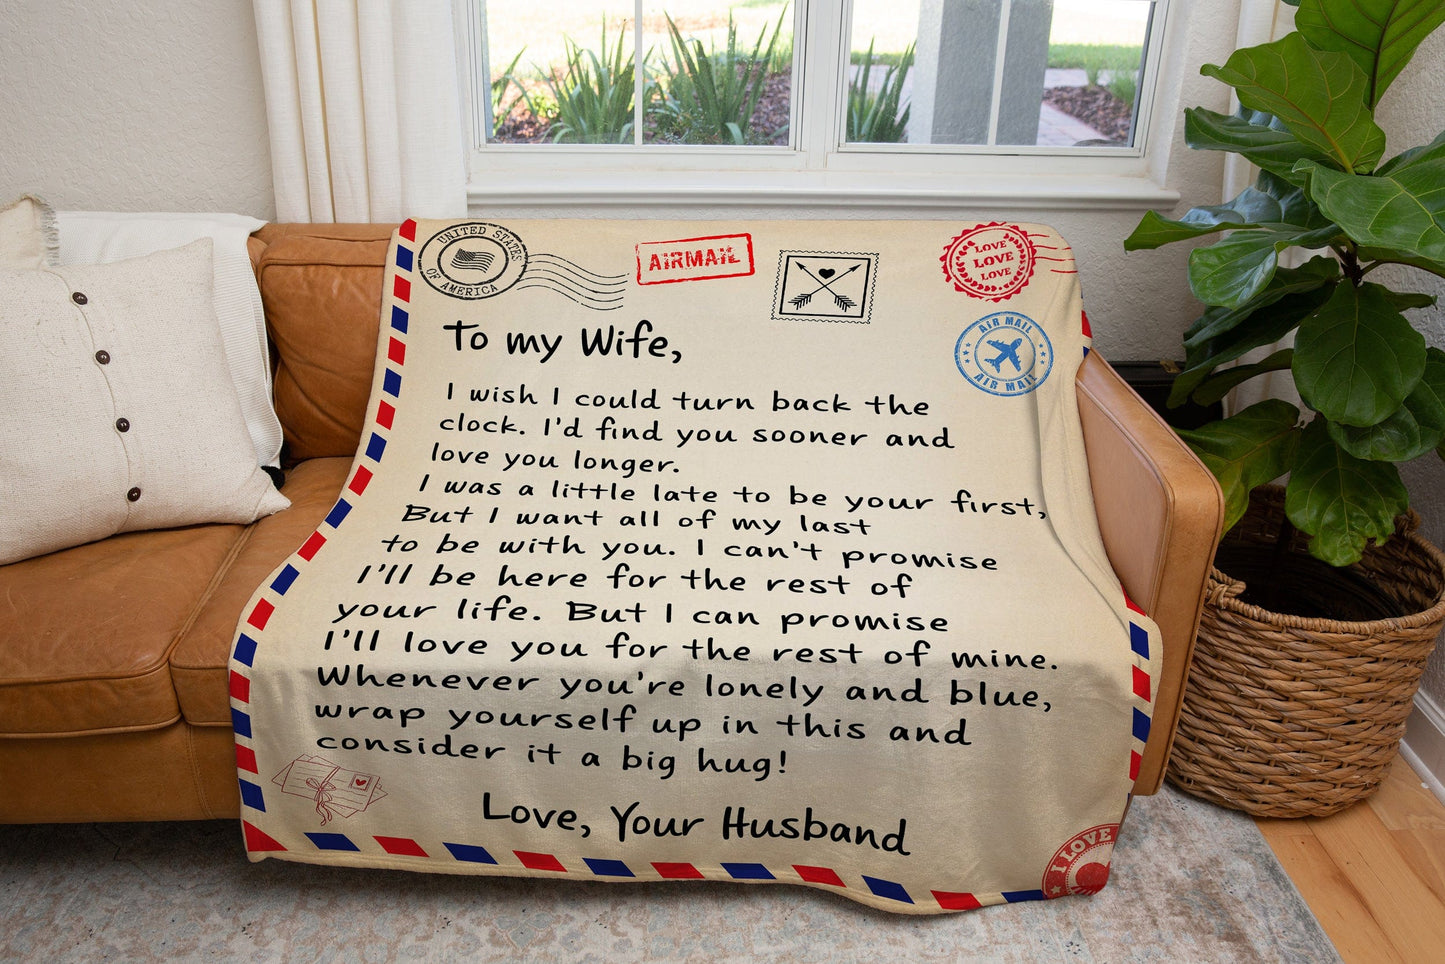 UNITED STATES
OF AMERICA
AIRMAIL
LOVE
LOVE
LOVE
AIR MAIL
AIR MAIL
To my Wife,
I wish I could turn back the
clock. I'd find you sooner and
love you longer.
I was a little late to be your first,
But I want all of my last
to be with you. I can't promise
I'll be here for the rest of
your life. But I can promise
I'll love you for the rest of mine.
Whenever you're lonely and blue,
wrap yourself up in this and
consider it a big hug!
Love, Your Husband
I LOVE